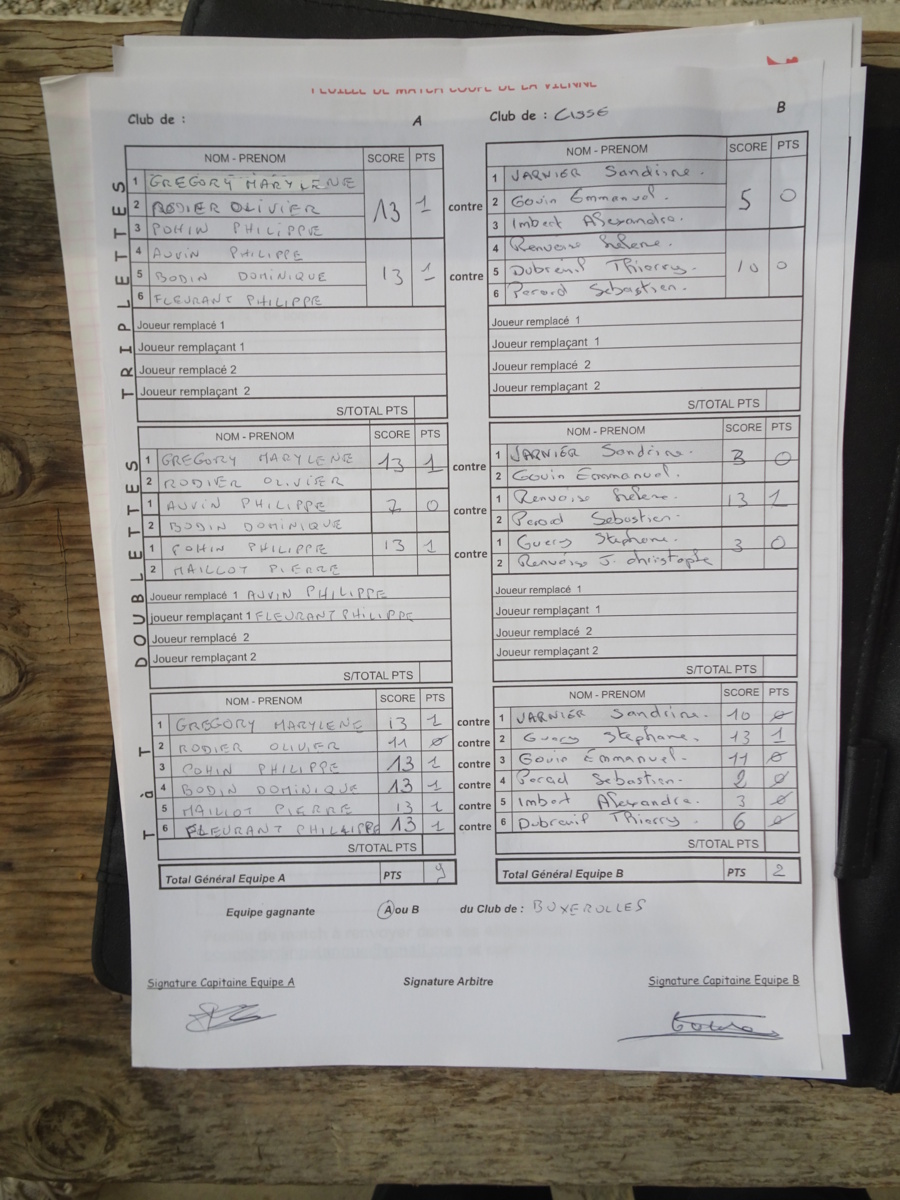 FEUILLE DE MATCH COUPE DE LA VIENNE
Club de : A Club de : CISSE B
TRIPLETTES
NOM - PRENOM SCORE PTS NOM - PRENOM SCORE PTS
1 GREGORY MARYLENE 1 JARNIER Sandrine.
2 RODIER OLIVIER 13 1 contre 2 Gouin Emmanuel. 5 0
3 POHIN PHILIPPE 3 Imbert Alexandra.
4 AUVIN PHILIPPE 4 Renvoise helene.
5 BODIN DOMINIQUE 13 1 contre 5 Dubreuil Thierry. 10 0
6 FLEURANT PHILIPPE 6 Perad Sebastien.
Joueur remplacé 1 Joueur remplacé 1
Joueur remplaçant 1 Joueur remplaçant 1
Joueur remplacé 2 Joueur remplacé 2
Joueur remplaçant 2 Joueur remplaçant 2
S/TOTAL PTS S/TOTAL PTS
DOUBLETTES
NOM - PRENOM SCORE PTS NOM - PRENOM SCORE PTS
1 GREGORY MARYLENE 13 1 contre 1 JARNIER Sandrine. 3 0
2 RODIER OLIVIER 2 Gouin Emmanuel.
1 AUVIN PHILIPPE 7 0 contre 1 Renvoise helene. 13 1
2 BODIN DOMINIQUE 2 Perad Sebastien.
1 POHIN PHILIPPE 13 1 contre 1 Guery Stephane. 3 0
2 MAILLOT PIERRE 2 Renvoise J. christophe
Joueur remplacé 1 AUVIN PHILIPPE Joueur remplacé 1
Joueur remplaçant 1 FLEURANT PHILIPPE Joueur remplaçant 1
Joueur remplacé 2 Joueur remplacé 2
Joueur remplaçant 2 Joueur remplaçant 2
S/TOTAL PTS S/TOTAL PTS
T à T
NOM - PRENOM SCORE PTS NOM - PRENOM SCORE PTS
1 GREGORY MARYLENE 13 1 contre 1 JARNIER Sandrine. 10 0
2 RODIER OLIVIER 11 0 contre 2 Guery Stephane. 13 1
3 POHIN PHILIPPE 13 1 contre 3 Gouin Emmanuel. 11 0
4 BODIN DOMINIQUE 13 1 contre 4 Perad Sebastien. 2 0
5 MAILLOT PIERRE 13 1 contre 5 Imbert Alexandra. 3 0
6 FLEURANT PHILIPPE 13 1 contre 6 Dubreuil Thierry. 6 0
S/TOTAL PTS S/TOTAL PTS
Total Général Equipe A PTS 9 Total Général Equipe B PTS 2
Equipe gagnante A ou B du Club de : BUXEROLLES
Signature Capitaine Equipe A Signature Arbitre Signature Capitaine Equipe B